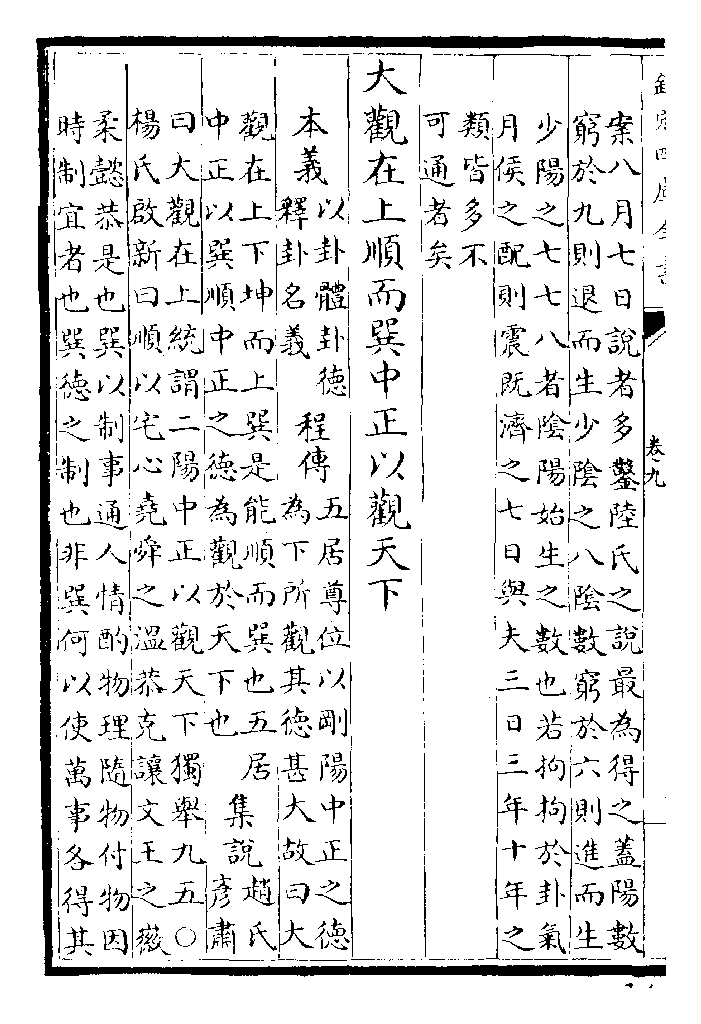 欽定四庫全書
卷九
案八月七日說者多鑿陸氏之說最為得之蓋陽數
窮於九則退而生少陰之八陰數窮於六則進而生
少陽之七七八者陰陽始生之數也若拘拘於卦氣
月侯之配則震既濟之七日與夫三日三年十年之
類皆多不
可通者矣
大觀在上順而巽中正以觀天下
本義
以卦體卦德
釋卦名義
程傳
五居尊位以剛陽中正之德
為下所觀其德甚大故曰大
觀在上下坤而上巽是能順而巽也五居
中正以巽順中正之德為觀於天下也
集說
趙氏
彦肅
曰大觀在上統謂二陽中正以觀天下獨舉九五○
楊氏啟新曰順以宅心堯舜之溫恭克讓文王之徽
柔懿恭是也巽以制事通人情酌物理隨物付物因
時制宜者也巽德之制也非巽何以使萬事各得其